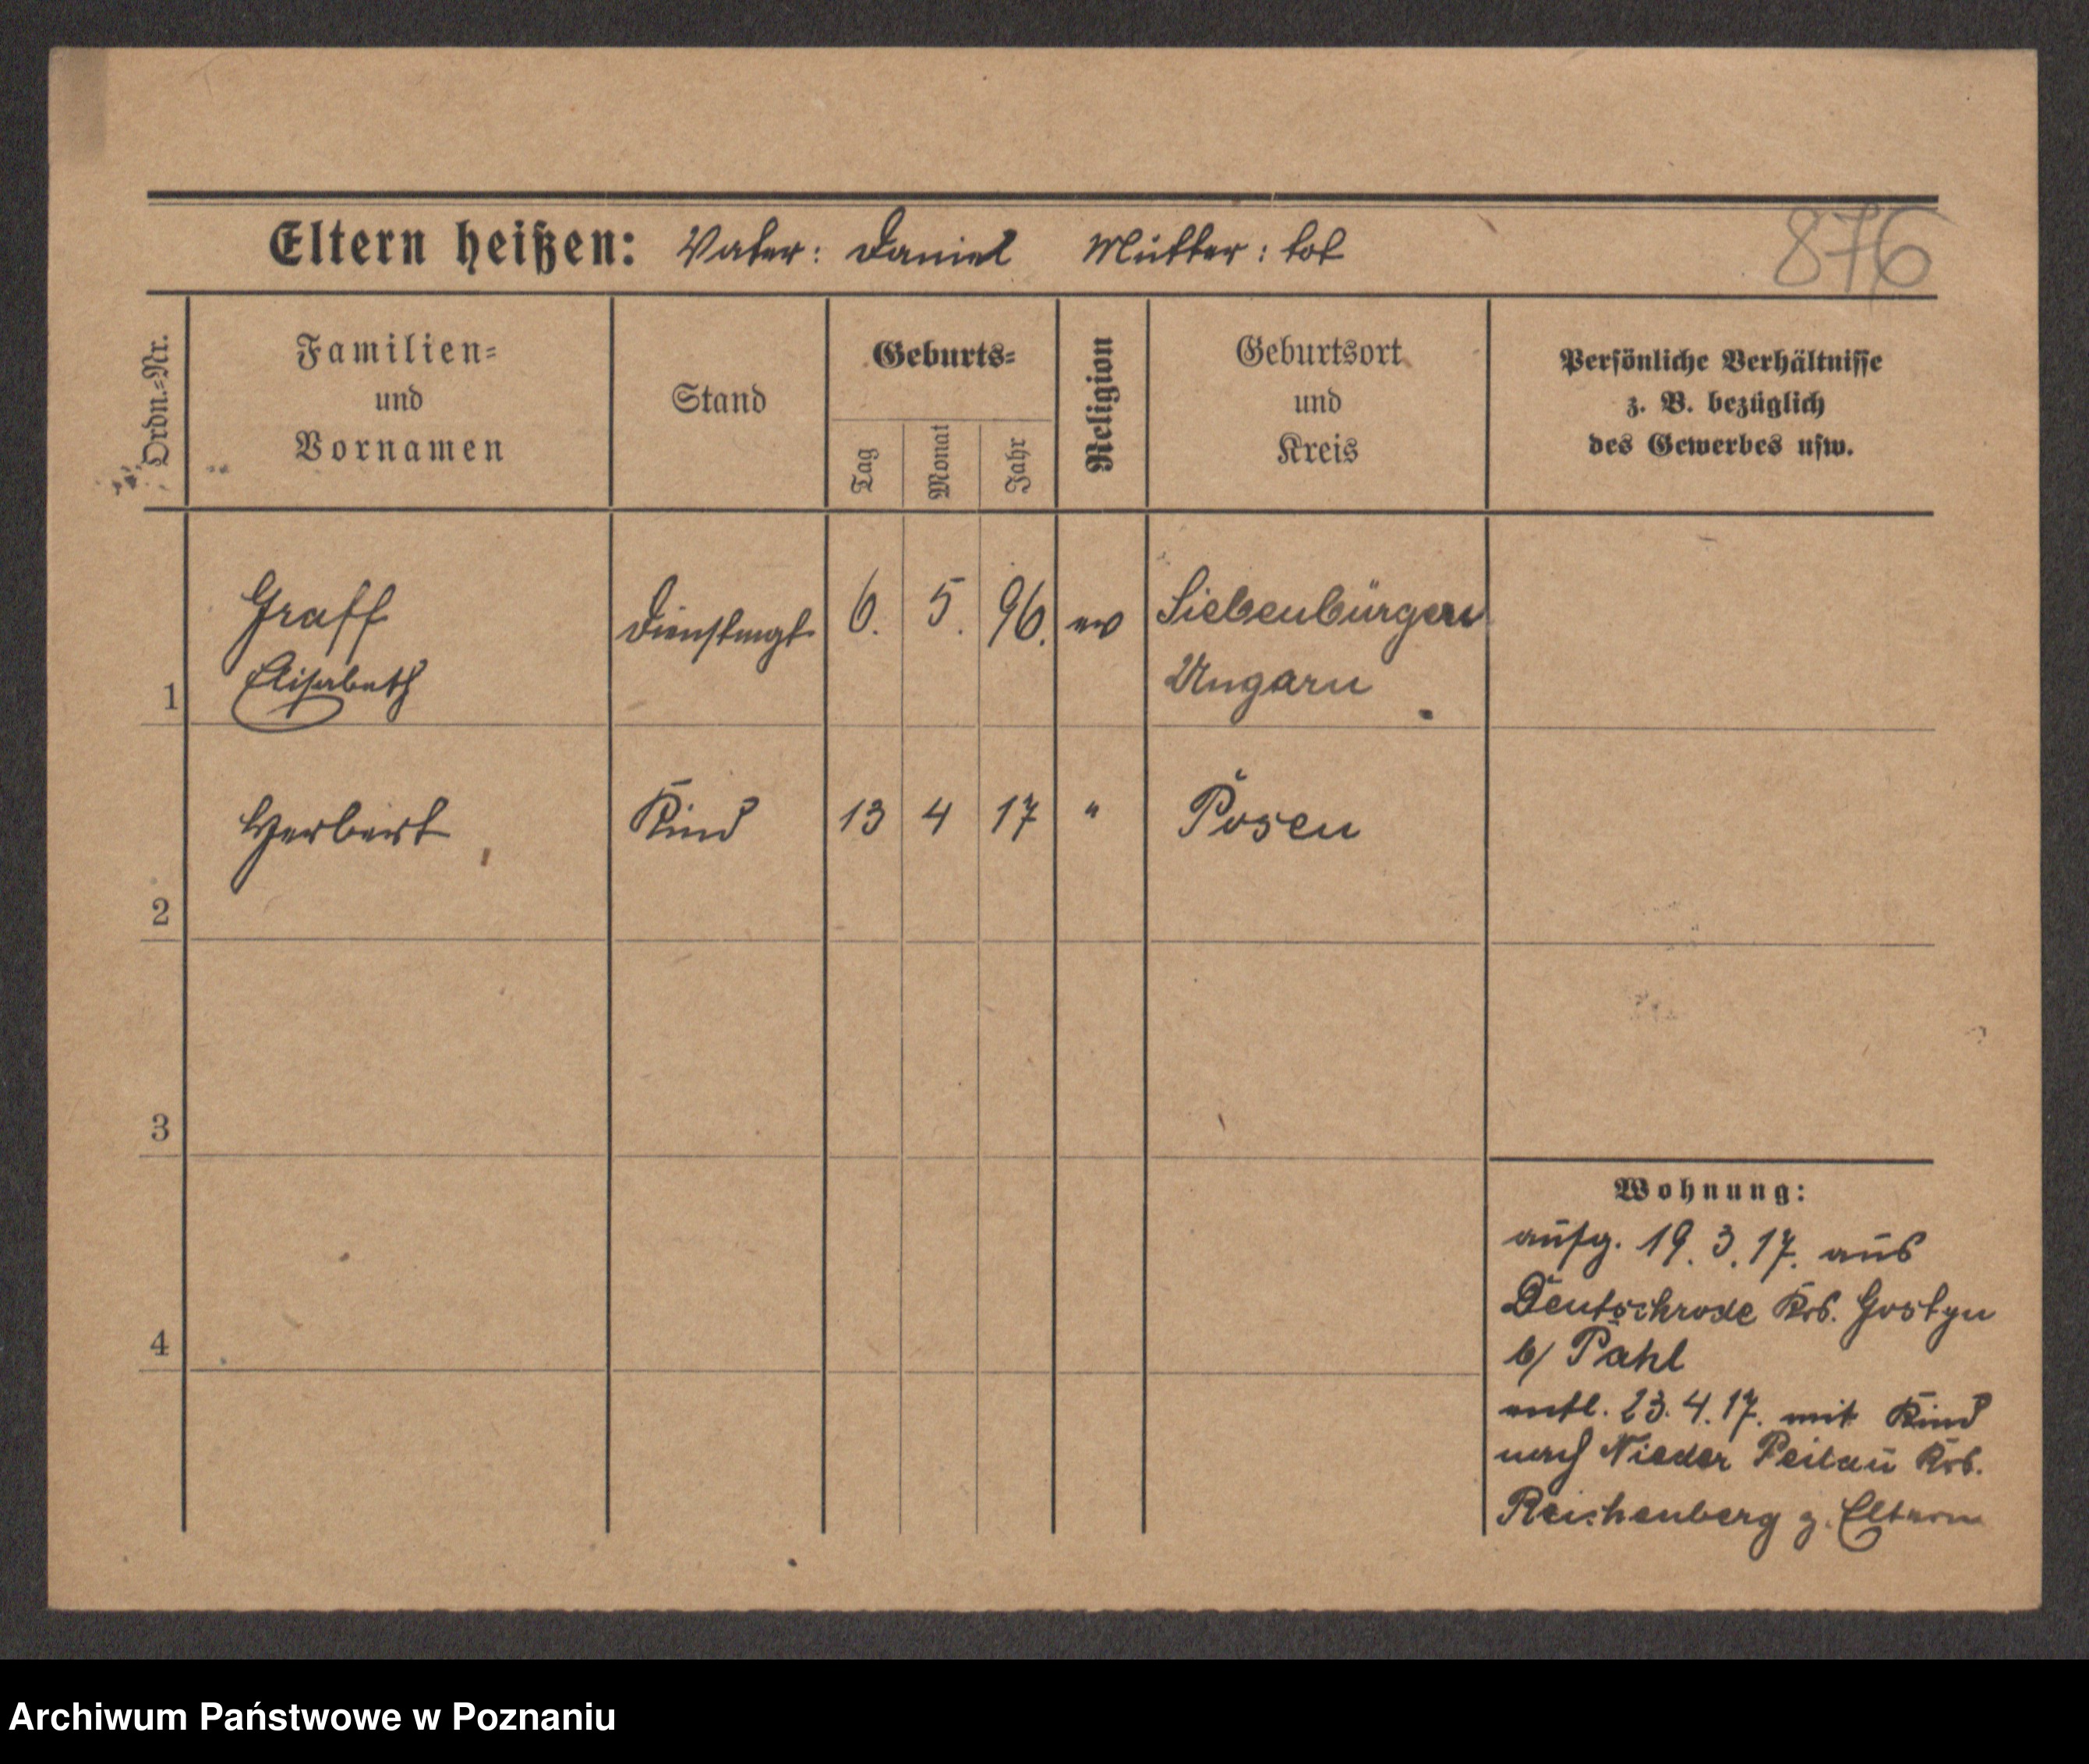 Eltern heißen: Vater: Daniel Mutter: tot
876
Ordn.-Nr.
Familien-
und
Vornamen
Stand
Geburts-
Tag
Monat
Jahr
Religion
Geburtsort
und
Kreis
Persönliche Verhältnisse
z. B. bezüglich
des Gewerbes usw.
1 Graff Dienstmgt. 6. 5. 96. ev Siebenbürgen
Elisabeth Ungarn
2 Herbert Kind 13 4 17 " Posen
3
4
Wohnung:
aufg. 19.3.17. aus
Deutschrode Krs. Gostyn
b/ Pahl
entl. 23.4.17. mit Kind
nach Nieder Peilau Krs.
Reichenberg z. Eltern
Archiwum Państwowe w Poznaniu